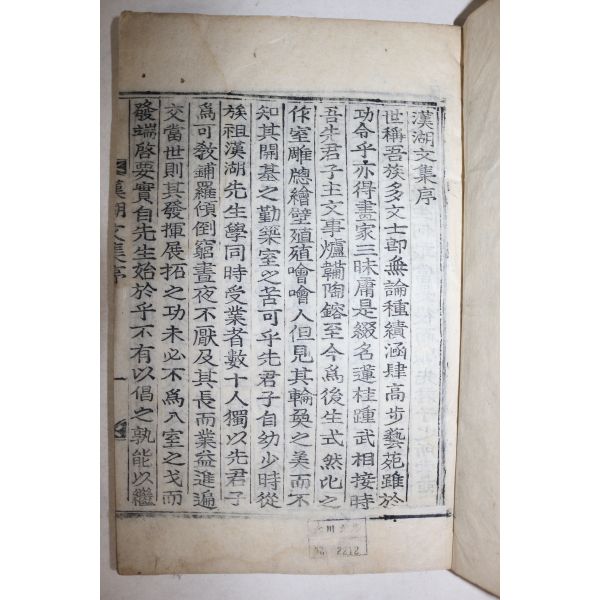 漢湖文集序
世稱吾族多文士卽無論種績涵肆高步藝苑雖於
功令乎亦得畫家三昧庸是綴名蓮桂踵武相接時
吾先君子主文事爐韛陶鎔至今爲後生式然比之
作室雕牕繪壁殖殖噲噲人但見其輪奐之美而不
知其開基之勤築室之苦可乎先君子自幼少時從
族祖漢湖先生學同時受業者數十人獨以先君子
爲可敎鋪羅傾倒窮晝夜不厭及其長而業益進遍
交當世則其發揮展拓之功未必不爲入室之戈而
發端啓要實自先生始於乎不有以倡之孰能以繼
漢湖文集序
一
2212